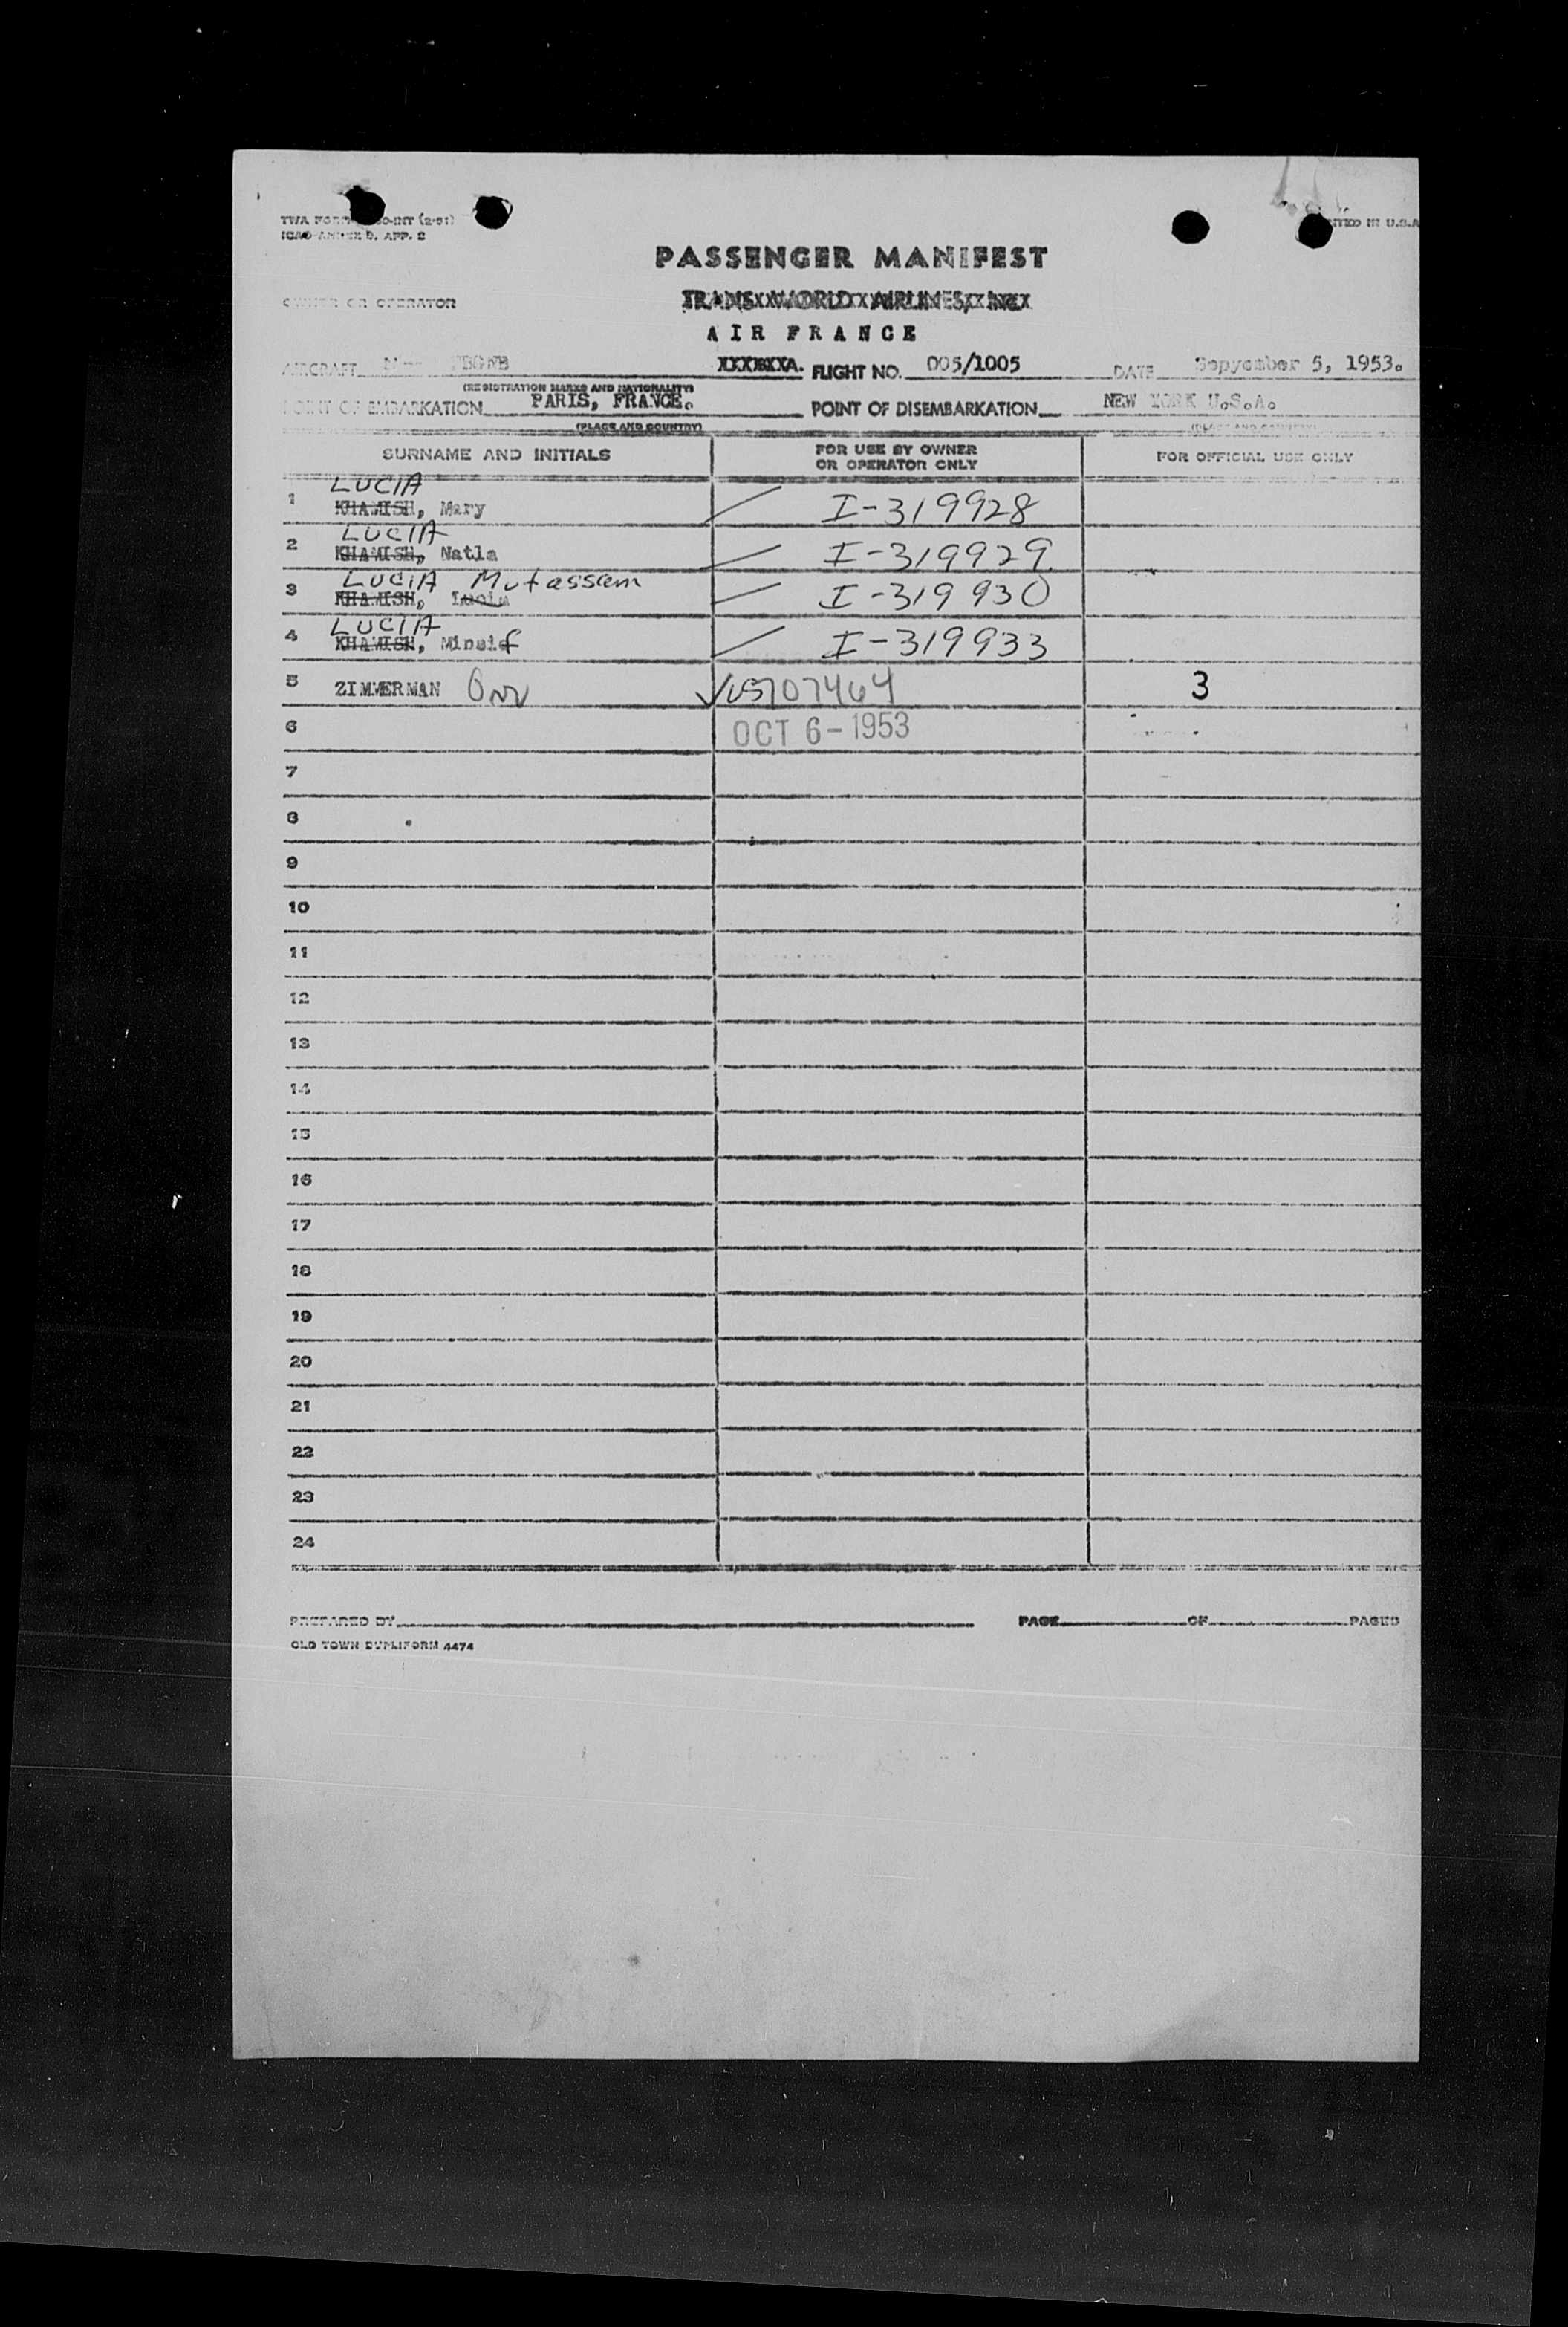 PASSENGER MANIFEST
OWNER OR OPERATOR TRANSXXWORLDXXAIRLINESXXINCX
AIR FRANCE
AIRCRAFT FLIGHT NO. 005/1005 DATE Sepyember 5, 1953.
(REGISTRATION MARKS AND NATIONALITY)
POINT OF EMBARKATION PARIS, FRANCE. POINT OF DISEMBARKATION NEW YORK U.S.A.
(PLACE AND COUNTRY) (PLACE AND COUNTRY)
SURNAME AND INITIALS FOR USE BY OWNER OR OPERATOR ONLY FOR OFFICIAL USE ONLY
LUCIA
1 KHAMISH, Mary I-319928
LUCIA
2 KHAMISH, Natla I-319929
LUCIA Mutassam
3 KHAMISH, Lucia I-319930
LUCIA
4 KHAMISH, Minsif I-319933
5 ZIMMERMAN US707464 3
6 OCT 6-1953
7
8
9
10
11
12
13
14
15
16
17
18
19
20
21
22
23
24
PREPARED BY PAGE OF PAGES
OLD TOWN DUPLIFORM 4474